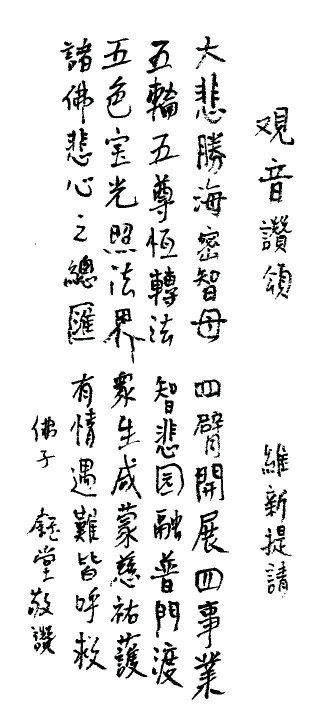 覌音讚頌 維新提請
大悲勝海密智母 四臂開展四事業
五輪五尊恒轉法 智悲园融普門渡
五色宝光照法界 眾生咸蒙慈祐護
諸佛悲心之總匯 有情遇難皆呼救
佛子 鈺堂敬讚